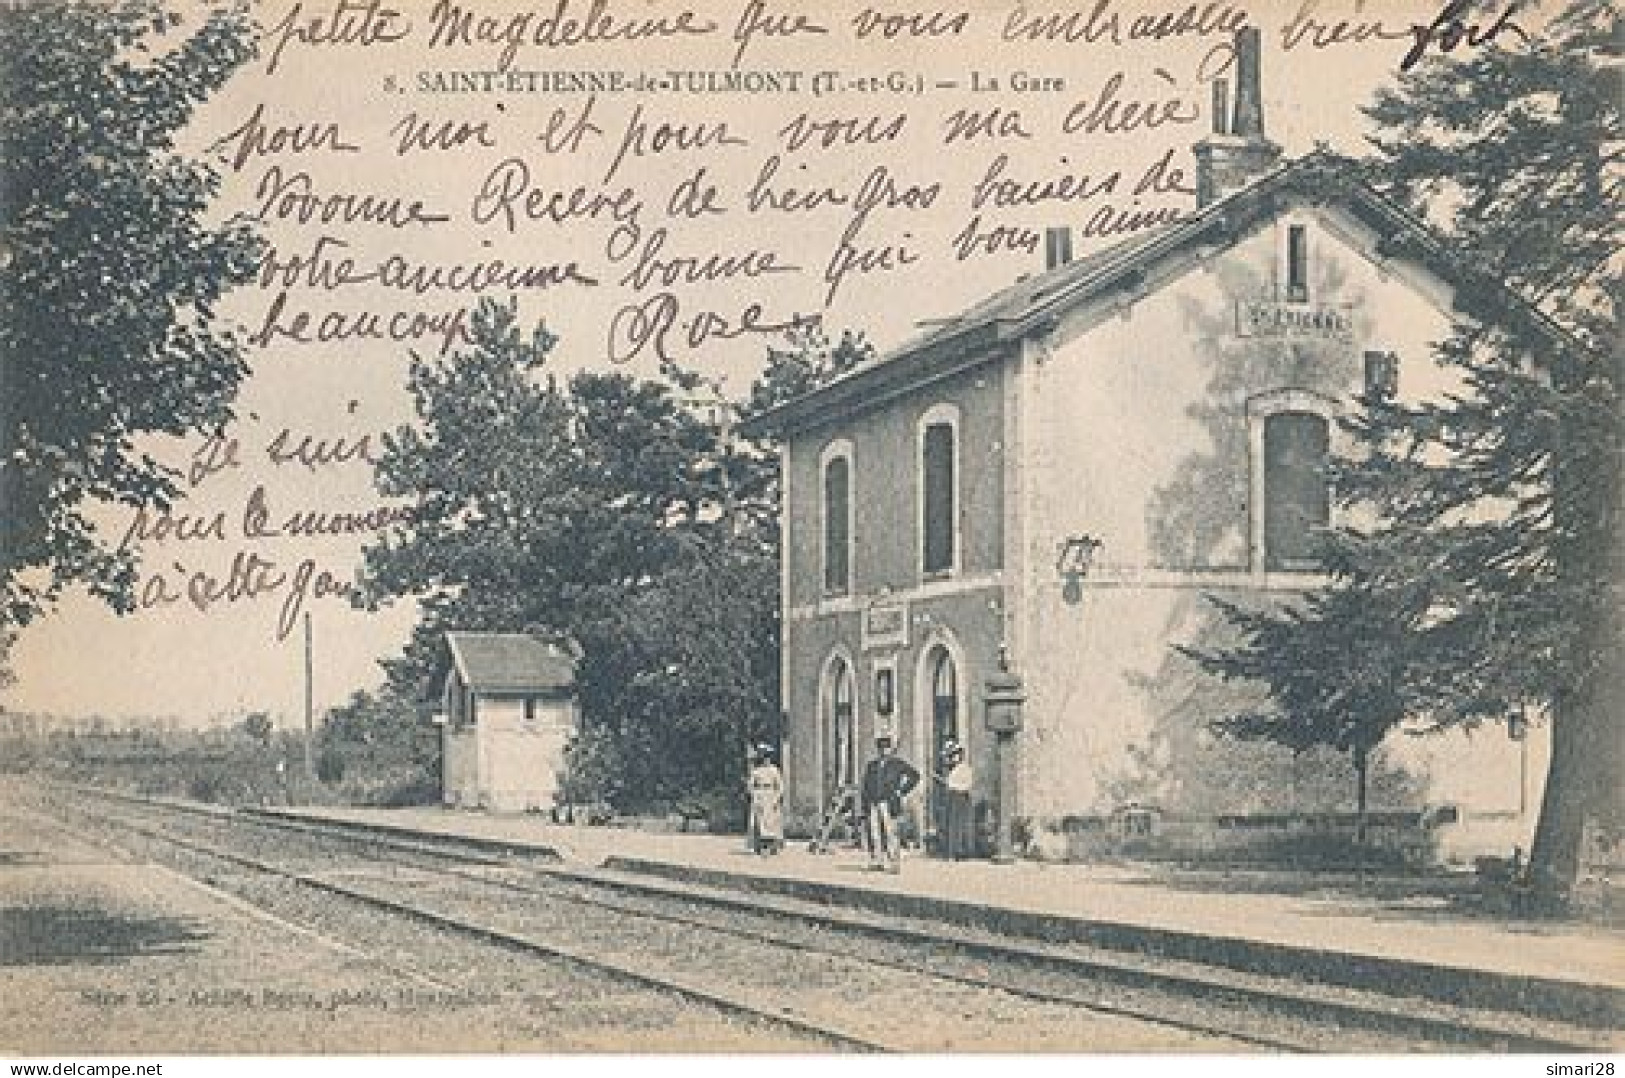 petite Magdeleine que vous embrassez bien fort
8. SAINT-ETIENNE-de-TULMONT (T.-et-G.) — La Gare
pour moi et pour vous ma chère
Yvonne Recevez de bien gros baisers de
votre ancienne bonne qui vous aime
beaucoup Rose
ST ETIENNE
je suis
pour le momen
à cette gar
Série 28 - Achille Bouis, phot., Montauban
simari28